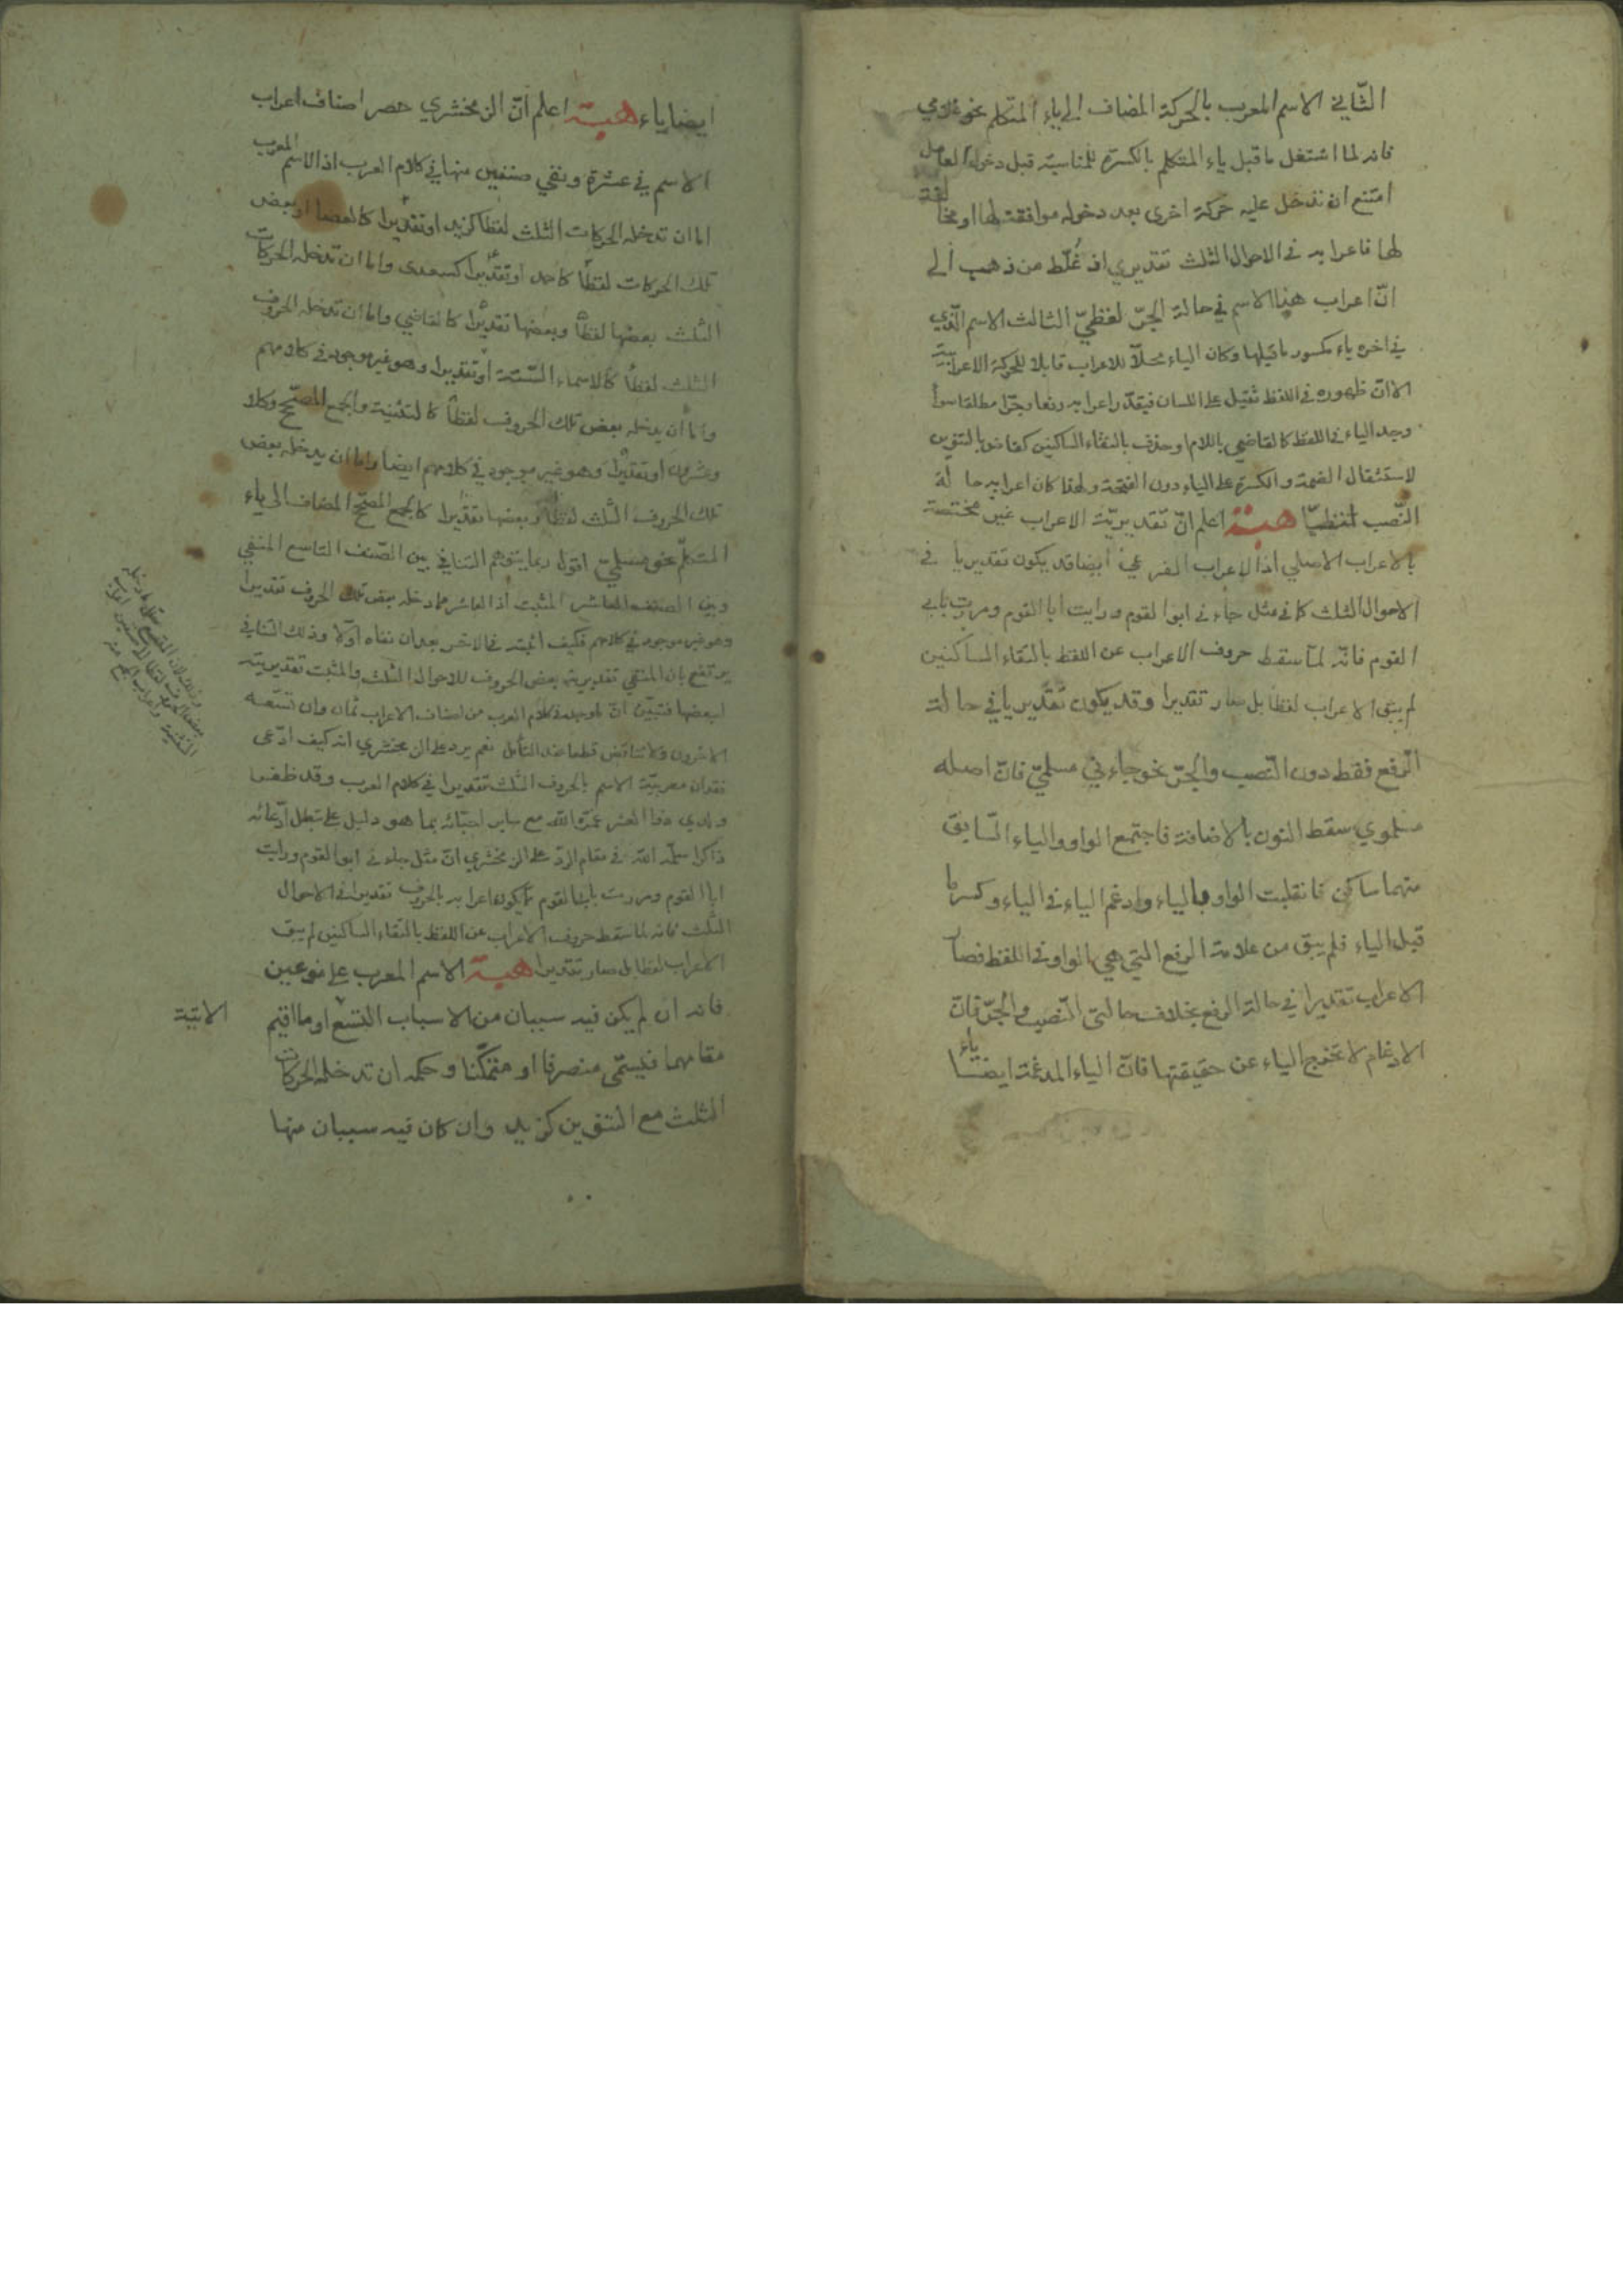 الثّاني الاسم المعرب بالحركة المضاف الى ياء المتكلم نحو غلامي
فانه لما اشتغل ما قبل ياء المتكلم بالكسرة للمناسبة قبل دخول العامل
امتنع ان تدخل عليه حركة اخرى بعد دخوله موافقة لها او مخالفة
لها فاعرابه في الاحوال الثلث تقديري اذ غُلّط من ذهب الى
انّ اعراب هذا الاسم في حالة الجرّ لفظيّ الثالث الاسم الّذي
في اخره ياء مكسور ما قبلها وكان الياء محلّا للاعراب قابلا للحركة الاعرابيّة
الا انّ ظهوره في اللفظ ثقيل على اللسان فيقدّر اعرابه رفعا وجرّا مطلقا سوا
وجد الياء في اللفظ كالقاضي باللام او حذف بالتقاء الساكنين كقاض بالتنوين
لاستثقال الضمة والكسرة على الياء دون الفتحة ولهذا كان اعرابه حالة
النّصب لفظيّا هبة اعلم انّ تقديريّة الاعراب غير مختصّة
بالاعراب الاصلي اذ الاعراب الفرعيّ ايضا قد يكون تقديريا في
الاحوال الثلث كما في مثل جاءني ابوا القوم ورايت ابا القوم ومررت بابي
القوم فانّه لمّا سقط حروف الاعراب عن اللفظ بالتقاء الساكنين
لم يبق الاعراب لفظا بل صار تقديرا وقد يكون تقديريا في حالة
الرّفع فقط دون النّصب والجرّ نحو جاءني مسلميّ فانّ اصله
مسلموي سقط النون بالاضافة فاجتمع الواو والياء السّابق
منهما ساكن فانقلبت الواو بالياء وادغم الياء في الياء وكسر ما
قبل الياء فلم يبق من علامة الرفع التي هي الواو في اللفظ فصار
الاعراب تقديرا في حالة الرفع بخلاف حالتي النّصب والجرّ فانّ
الادغام لا تخرج الياء عن حقيقتها فانّ الياء المدغمة ايضا ياء
ايضا ياء هبة اعلم انّ الزمخشري حصر اصناف اعراب
الاسم في عشرة ونفي صنفين منها في كلام العرب اذ الاسم المعرب
اما ان تدخله الحركات الثلث لفظا كزيد او تقديرا كالعصا او بعض
تلك الحركات لفظا كاحمد او تقديرا كسعدى واما ان تدخله الحركات
الثلث بعضها لفظا وبعضها تقديرا كالقاضي واما ان تدخله الحروف
الثلث لفظا كالاسماء الستة او تقديرا وهو غير موجود في كلامهم
واما ان يدخله بعض تلك الحروف لفظا كالتثنية والجمع المصحّح وكلا
وعشرون او تقديرا وهو غير موجود في كلامهم ايضا واما ان يدخله بعض
تلك الحروف الثلث لفظا وبعضها تقديرا كالجمع المصحّح المضاف الى ياء
المتكلّم نحو مسلميّ اقول ربما يتوهّم التنافي بين الصّنف التاسع المنفي
وبين الصنف العاشر المثبت اذ العاشر مما دخله بعض تلك الحروف تقديرا
وهو غير موجود في كلامهم فكيف اثبته في الاخر بعد ان نفاه اوّلا وذلك التنافي
يرتفع بان المنفي تقديرية بعض الحروف للاحوال الثلث والمثبت تقديريته
لبعضها فتبيّن انّ الموجود في كلام العرب من اصناف الاعراب ثمان وان تسّعه
الاخرون ولا تناقض قطعا عند التأمل نعم يرد على الزمخشري انه كيف ادّعى
فقدان معربيّة الاسم بالحروف الثلث تقديرا في كلام العرب وقد ظفر
ولدي عمّره اللّه مع ساير احبّائه بما هو دليل على تبطل ادّعائه
ذاكرا سلّمه اللّه في مقام الردّ على الزمخشري انّ مثل جاءني ابوا القوم ورايت
ابا القوم ومررت بابي القوم مما يكون اعرابه بالحروف تقديرا في الاحوال
الثلث فانه لما سقط حروف الاعراب عن اللفظ بالتقاء الساكنين لم يبق
الاعراب لفظا بل صار تقديرا هبة الاسم المعرب على نوعين
فانه ان لم يكن فيه سببان من الاسباب التسع او ما اقيم
الاتية
مقامهما فيسمّى منصرفا او متمكّنا وحكمه ان تدخله الحركات
الثلث مع التنوين كزيد وان كان فيه سببان منها